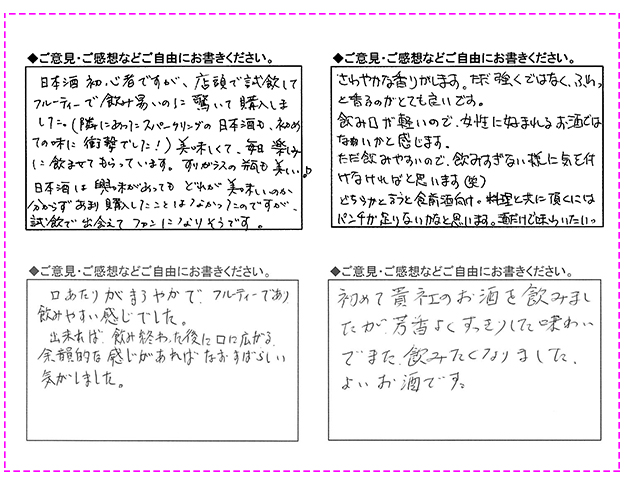 ◆ご意見・ご感想などご自由にお書きください。
日本酒初心者ですが、店頭で試飲して
フルーティーで飲み易いのに驚いて購入しま
した。(隣にあったスパークリングの日本酒も、初め
ての味に衝撃でした!)美味しくて、毎日楽しみ
に飲ませてもらっています。すりガラスの瓶も美しい♪
日本酒は興味があってもどれが美味しいのか
分からずあまり購入したことはなかったのですが、
試飲で出会えてファンになりそうです。
◆ご意見・ご感想などご自由にお書きください。
さわやかな香りがします。ただ強くではなく、ふわっ
と香るのがとても良いです。
飲み口が軽いので、女性に好まれるお酒では
ないかと感じます。
ただ飲みやすいので、飲みすぎない様に気を付
けなければと思います(笑)
どちらかと言うと食前酒向け。料理と共に頂くには
パンチが足りないかなと思います。酒だけで味わいたいっ
◆ご意見・ご感想などご自由にお書きください。
口あたりがまろやかで、フルーティーであり
飲みやすい感じでした。
出来れば、飲み終わった後に口に広がる、
余韻的な感じがあればなおすばらしい
気がしました。
◆ご意見・ご感想などご自由にお書きください。
初めて貴社のお酒を飲みまし
たが、芳香よくすっきりした味わい
でまた、飲みたくなりました、
よいお酒です。